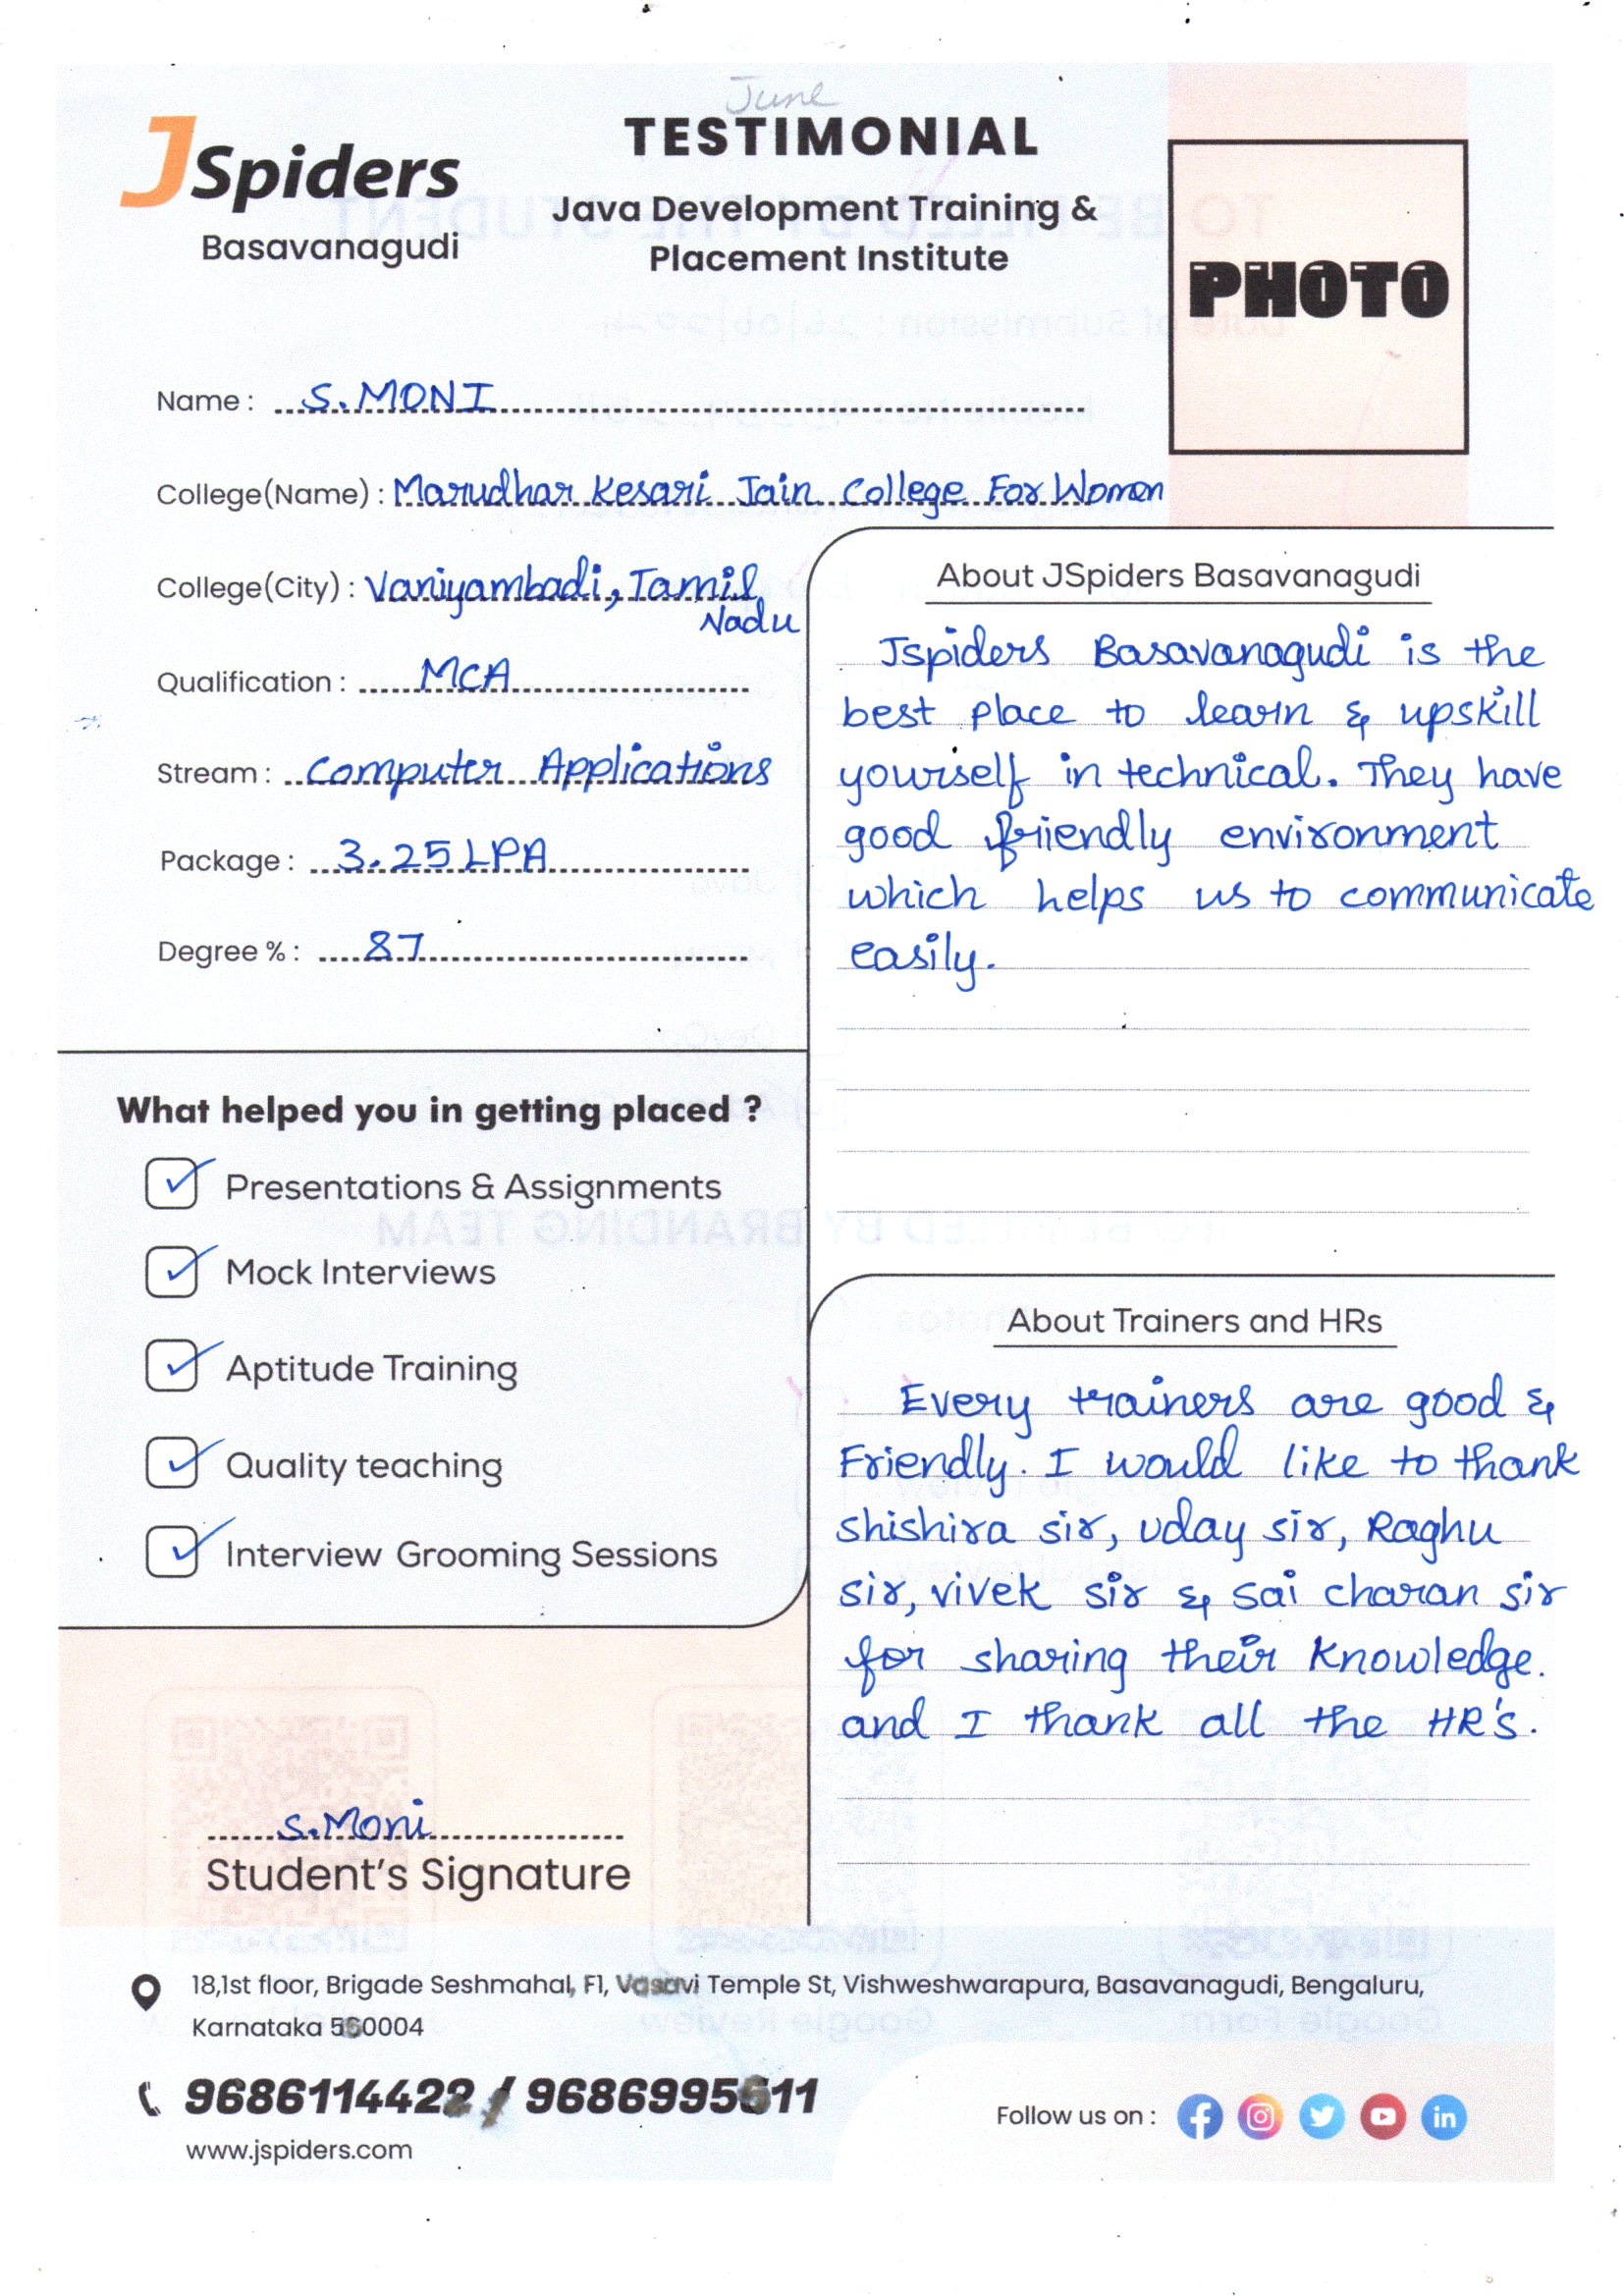 June
JSpiders
Basavanagudi
TESTIMONIAL
Java Development Training &
Placement Institute
PHOTO
Name : S.MONI
College(Name) : Marudhar Kesari Jain College For Women
College(City) : Vaniyambadi, Tamil
Nadu
Qualification : MCA
Stream : Computer Applications
Package : 3.25 LPA
Degree % : 87
What helped you in getting placed ?
Presentations & Assignments
Mock Interviews
Aptitude Training
Quality teaching
Interview Grooming Sessions
S.Moni
Student's Signature
About JSpiders Basavanagudi
Jspiders Basavanagudi is the
best place to learn & upskill
yourself in technical. They have
good friendly environment
which helps us to communicate
easily.
About Trainers and HRs
Every trainers are good &
Friendly. I would like to thank
shishira sir, uday sir, Raghu
sir, vivek sir & sai charan sir
for sharing their knowledge.
and I thank all the HR's.
18,1st floor, Brigade Seshmahal, F1, Vasavi Temple St, Vishweshwarapura, Basavanagudi, Bengaluru,
Karnataka 560004
9686114422 / 9686995611
www.jspiders.com
Follow us on :